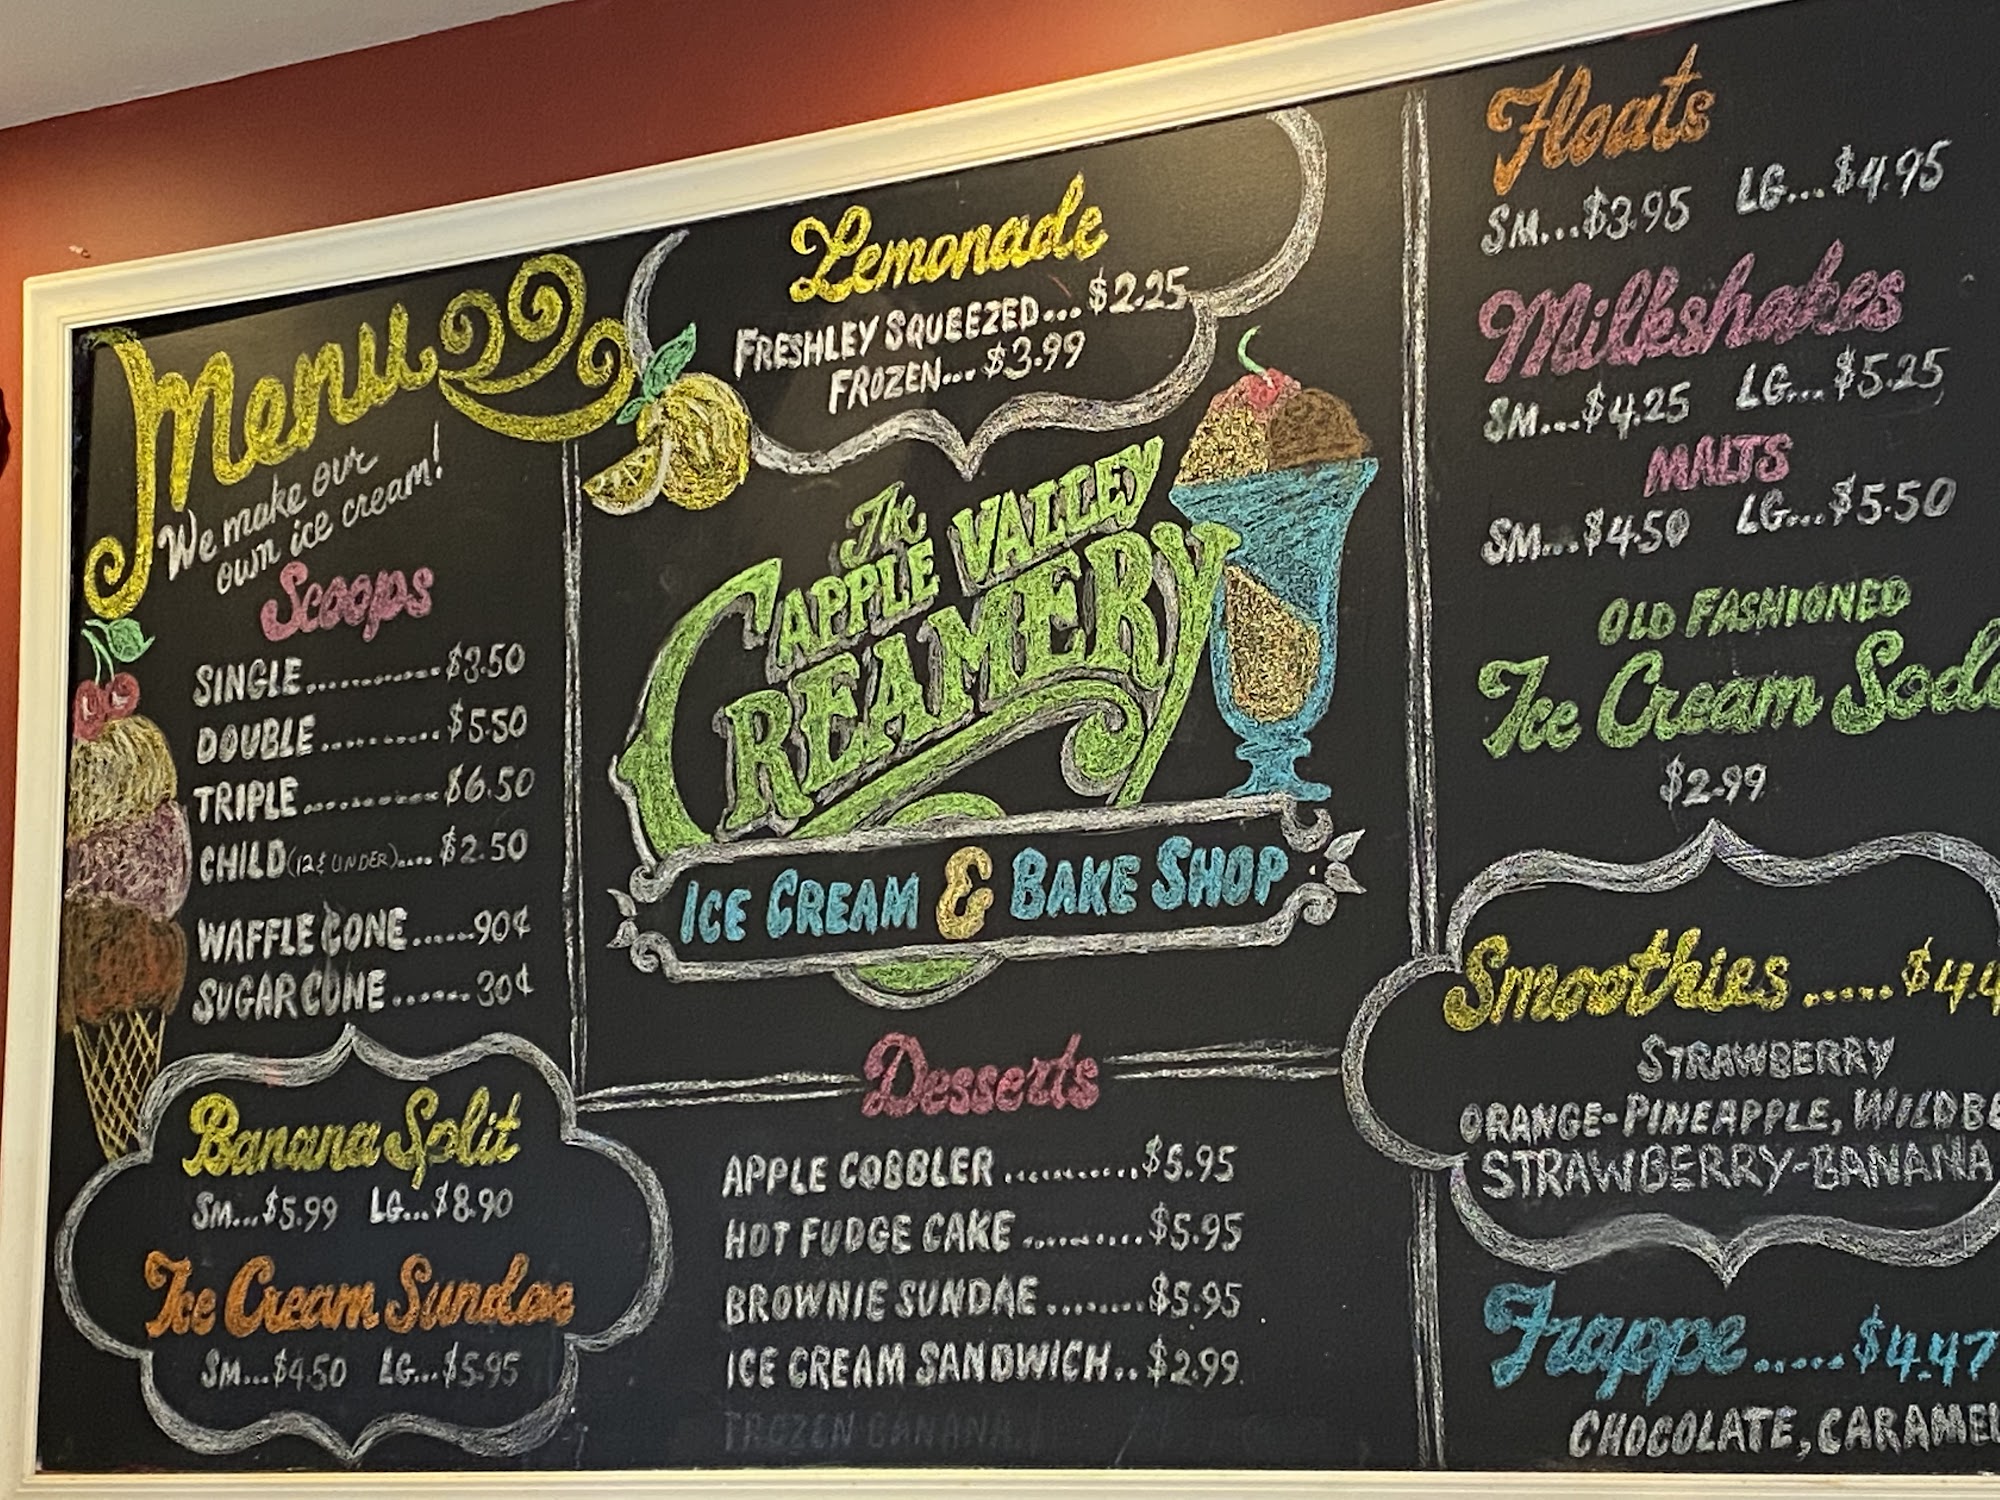 Menu
We make our
own ice cream!
Scoops
SINGLE............$3.50
DOUBLE..........$5.50
TRIPLE............$6.50
CHILD (12 & UNDER)....$2.50
WAFFLE CONE......90¢
SUGAR CONE.......30¢
Banana Split
SM...$5.99 LG...$8.90
Ice Cream Sundae
SM...$4.50 LG...$5.95
Lemonade
FRESHLEY SQUEEZED...$2.25
FROZEN...$3.99
The
APPLE VALLEY
CREAMERY
ICE CREAM & BAKE SHOP
Desserts
APPLE COBBLER...........$5.95
HOT FUDGE CAKE..........$5.95
BROWNIE SUNDAE........$5.95
ICE CREAM SANDWICH..$2.99
FROZEN BANANA
Floats
SM...$3.95 LG...$4.95
Milkshakes
SM...$4.25 LG...$5.25
MALTS
SM...$4.50 LG...$5.50
OLD FASHIONED
Ice Cream Soda
$2.99
Smoothies.....$4.4
STRAWBERRY
ORANGE-PINEAPPLE, WILDBE
STRAWBERRY-BANANA
Frappe.....$4.47
CHOCOLATE, CARAMEL